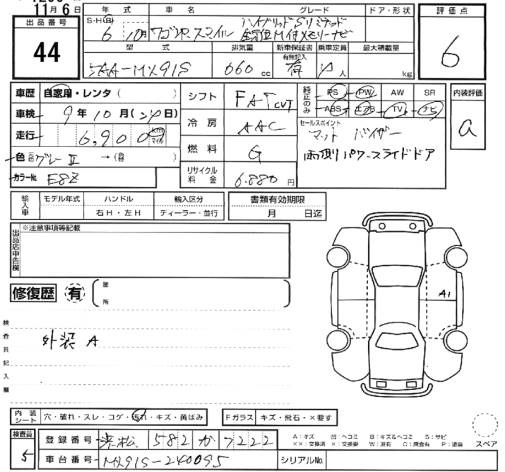 11月6日
出品番号
44
年式
車名
グレード
ドア・形状
評価点
S・H・(R)
6 10月
ワゴンRスマイル
ハイブリッドSリミテッド
全方位M付メモリーナビ
6
型式
排気量
新車保証書
有無記入
乗車定員
最大積載量
5AA-MX91S
660 cc
有
人
kg
車歴
自家用・レンタ( )
シフト
FAT CVT
純正のみ
PS PW AW SR
ABS エアB TV ナビ
内装評価
a
車検
9年10月(20日)
冷房
AAC
セールスポイント
マット バイザー
走行
6,900
km
マイル
両側パワースライドドア
色
グレーⅡ
燃料
G
カラーNo.
E8Z
リサイクル料金
6.880円
輸入車
モデル年式
ハンドル
輸入区分
書類有効期限
右H・左H
ディーラー・並行
月 日迄
出品店申告欄
※注意事項等記載
修復歴
有
箇所
検査員記入欄
外装 A
A1
内装シート
穴・破れ・スレ・コゲ・汚れ・キズ・黄ばみ
Fガラス
キズ・飛石・×要す
スペア
検査員
5
登録番号
浜松 582 か 7222
A:キズ
車台番号
MX91S-240095
シリアルNo.